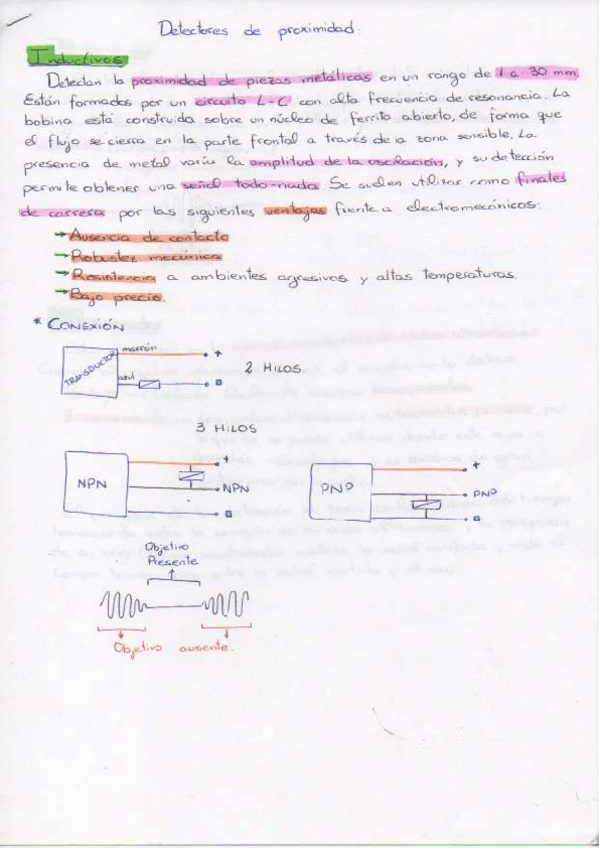 Detectores de proximidad:
Inductivos
Detectan la proximidad de piezas metálicas en un rango de 1 a 30 mm.
Están formados por un circuito L-C con alta frecuencia de resonancia. La
bobina está construida sobre un núcleo de ferrita abierto, de forma que
el flujo se cierra en la parte frontal a través de la zona sensible. La
presencia de metal varía la amplitud de la oscilación, y su detección
permite obtener una señal todo-nada. Se suelen utilizar como finales
de carrera por las siguientes ventajas frente a electromecánicos:
→ Ausencia de contacto
→ Robustes mecánica
→ Resistencia a ambientes agresivos y altas temperaturas
→ Bajo precio.
* CONEXIÓN
TRANSDUCTOR
marrón
+
azul
2 HILOS.
3 HILOS
NPN
+
NPN
PNP
+
PNP
Objetivo
Presente
Objetivo ausente.